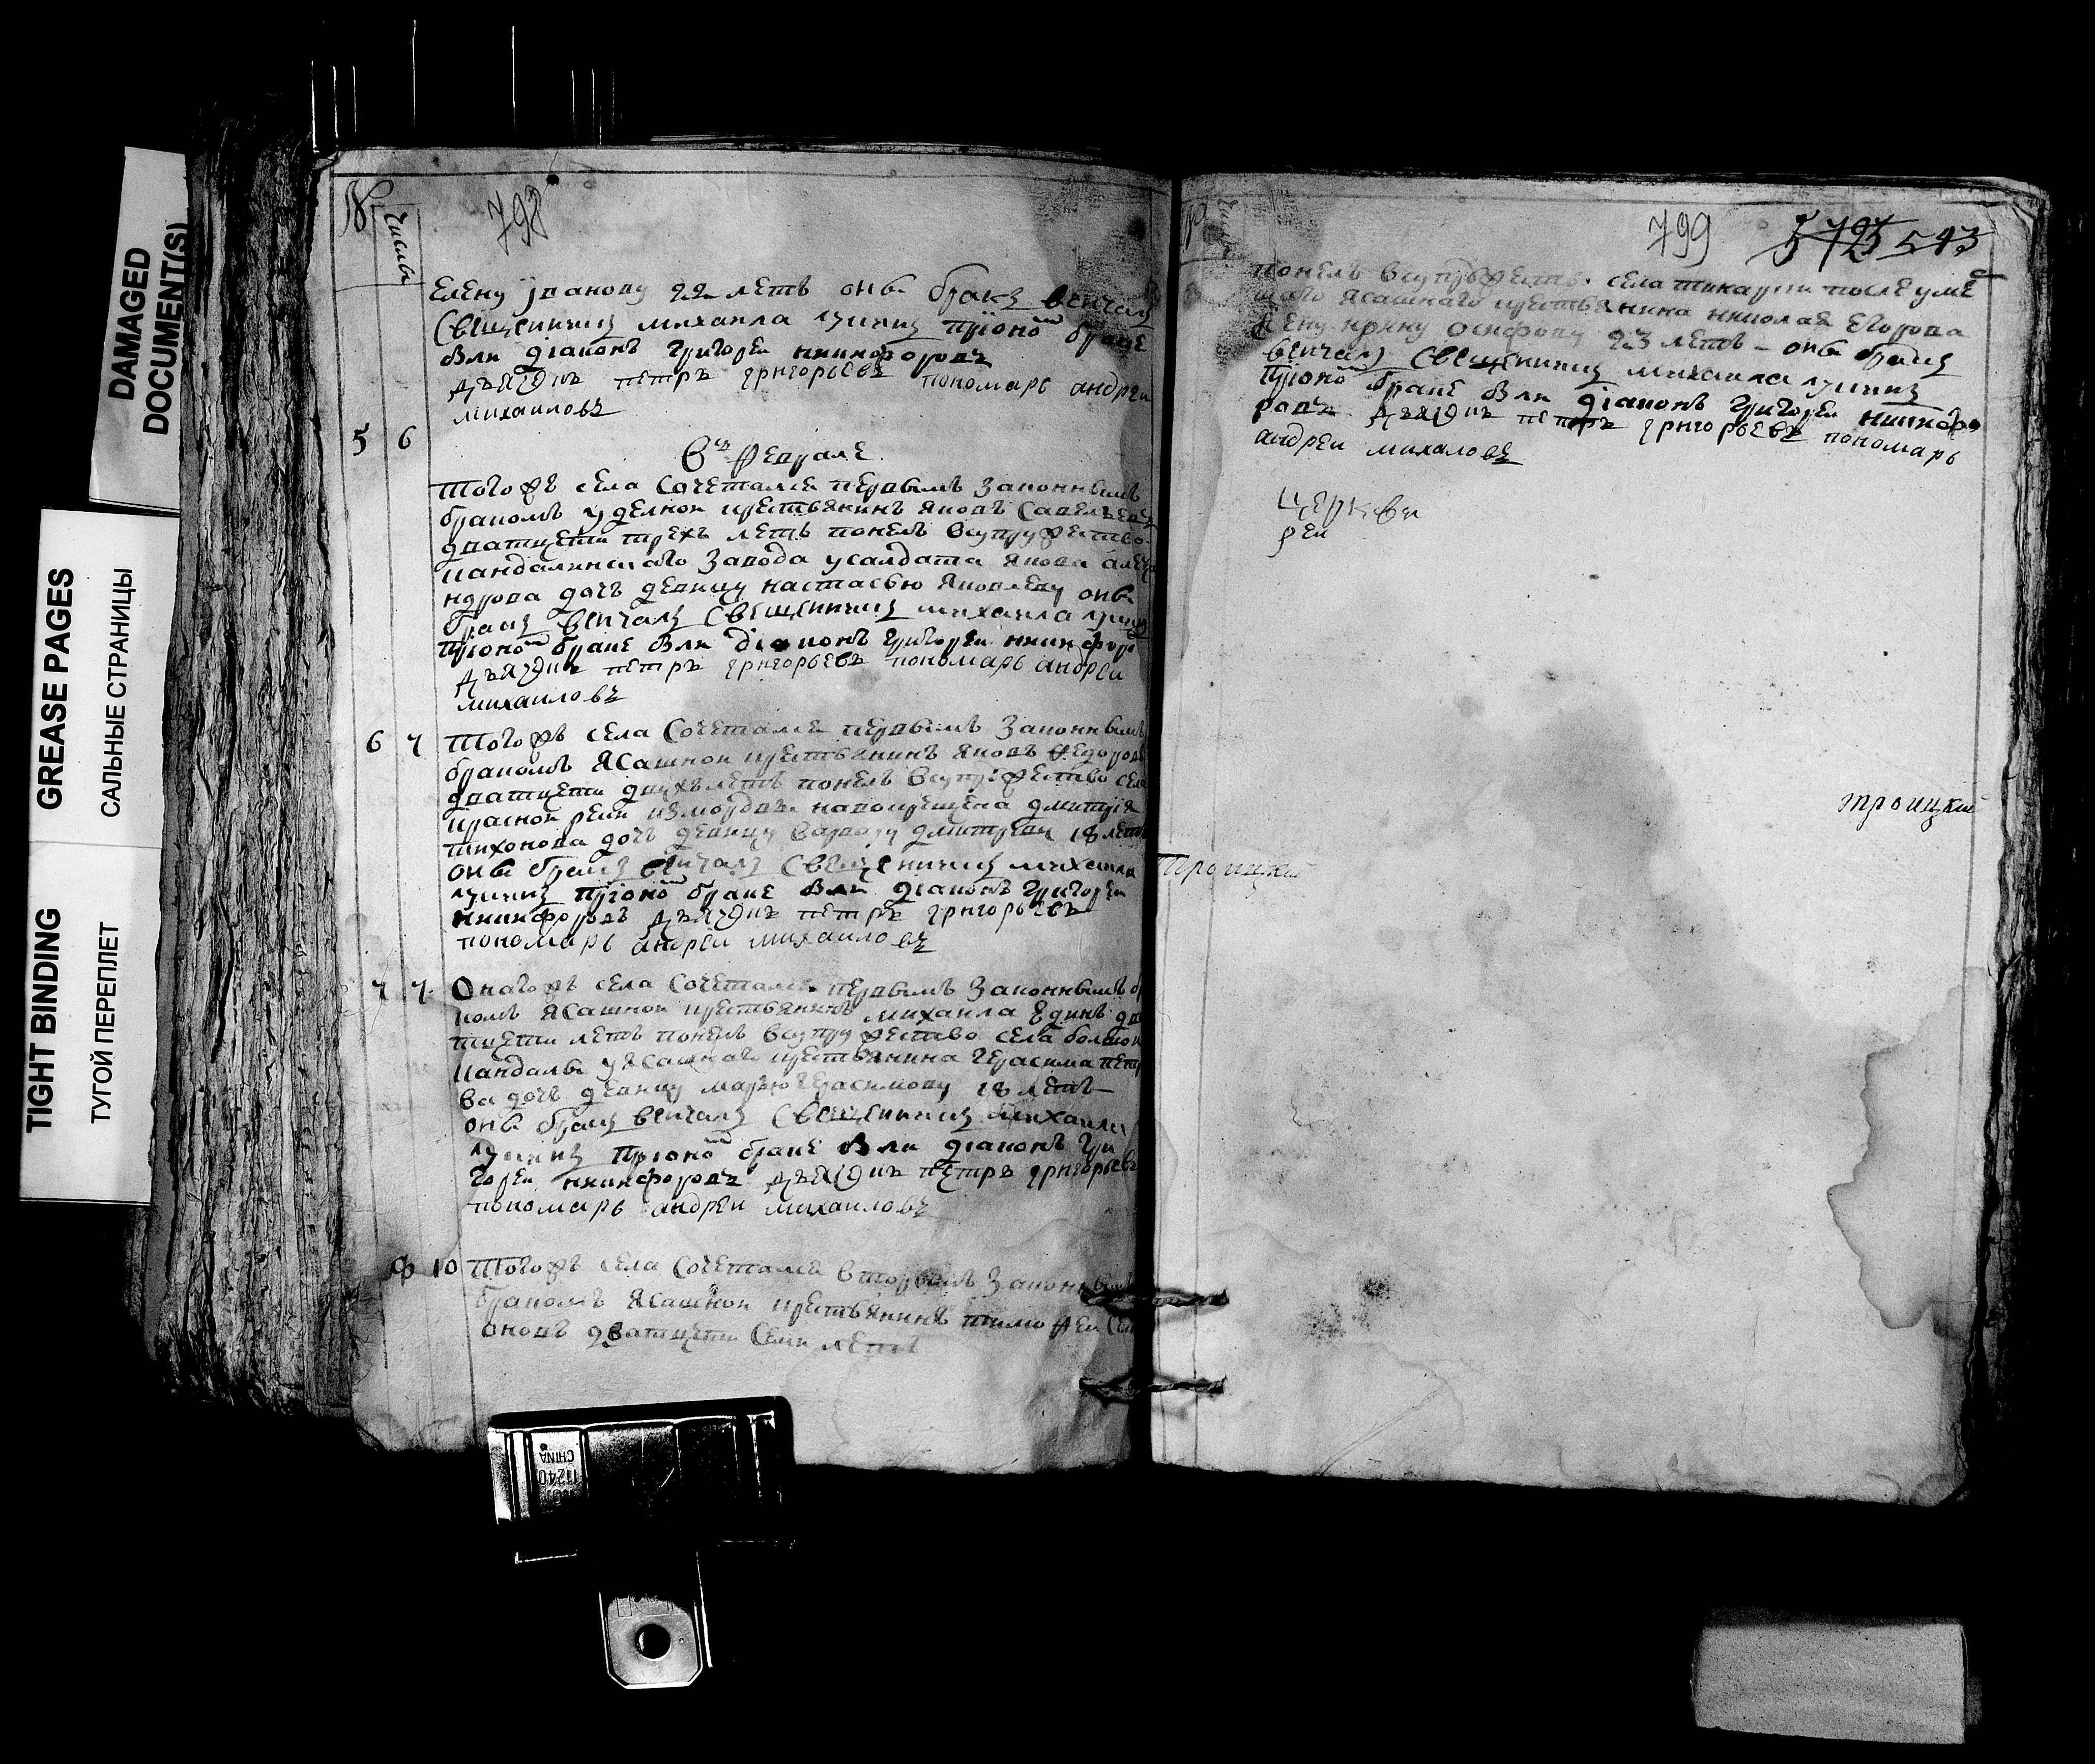 DAMAGED
DOCUMENT(S)
GREASE PAGES
САЛЬНЫЕ СТРАНИЦЫ
TIGHT BINDING
ТУГОЙ ПЕРЕПЛЕТ
№ числы 798
Елену Iванову 22 летъ онъ бракъ венчалъ
Священникъ михаила лукинъ приономъ браке
были диаконъ Григореи никифоровъ
дьячокъ петръ григорьевъ пономарь андреи
михаиловъ
5 6
въ Феврале
Тогожъ села Сочетался первымъ Законнымъ
бракомъ уделнои крестьянинъ яковъ Савельевъ
дватцети трехъ летъ понелъ всупружество
кандалинскаго Завода усалдата якова алекса
ндрова дочь девицу настасью яковлеву онъ
бракъ венчалъ Священникъ михаила лукинъ
приономъ браке были диаконъ Григореи никифоро
дьячокъ петръ григорьевъ пономарь андреи
михаиловъ
6 7 Тогожъ села Сочетался первымъ Законнымъ
бракомъ ясашнои крестьянинъ яковъ Федоровъ
дватцети двухълетъ понелъ всупружество села
краснои реки измордвы новокрещена дмитрия
тихонова дочь девицу варвару дмитреву 18 летъ
онъ бракъ венчалъ Священникъ михаила
лукинъ приономъ браке были диаконъ Григореи
никифоровъ дьячокъ петръ григорьевъ
пономарь андреи михаиловъ
7 7 Оногожъ села Сочетался первымъ Законнымъ б
комъ ясашнои крестьянинъ михаила Единъ два
тцети летъ понелъ всупружество села болшои
кандалы уясашнаго крестьянина Герасима петро
ва дочь девицу марью Герасимову 18 летъ
онъ бракъ венчалъ Священникъ михаила
лукинъ приономъ браке были диаконъ Гри
гореи никифоровъ дьячокъ петръ григорьевъ
пономарь андреи михаиловъ
8 10 Тогожъ села Сочетался вторымъ Законнымъ
бракомъ ясашнои крестьянинъ тимофеи Сем
оновъ дватцети Семи летъ
№ 799 543
понелъ всупружество села после уме
шаго ясашнаго крестьянина николая Егорова
жену ирину осифову 23 летъ онъ бракъ
венчалъ Священникъ михаила лукинъ
приономъ браке были диаконъ Григореи никифо
ровъ дьячокъ петръ григорьевъ пономарь
андреи михаловъ
церкви
реи
троицкия
Троицкия